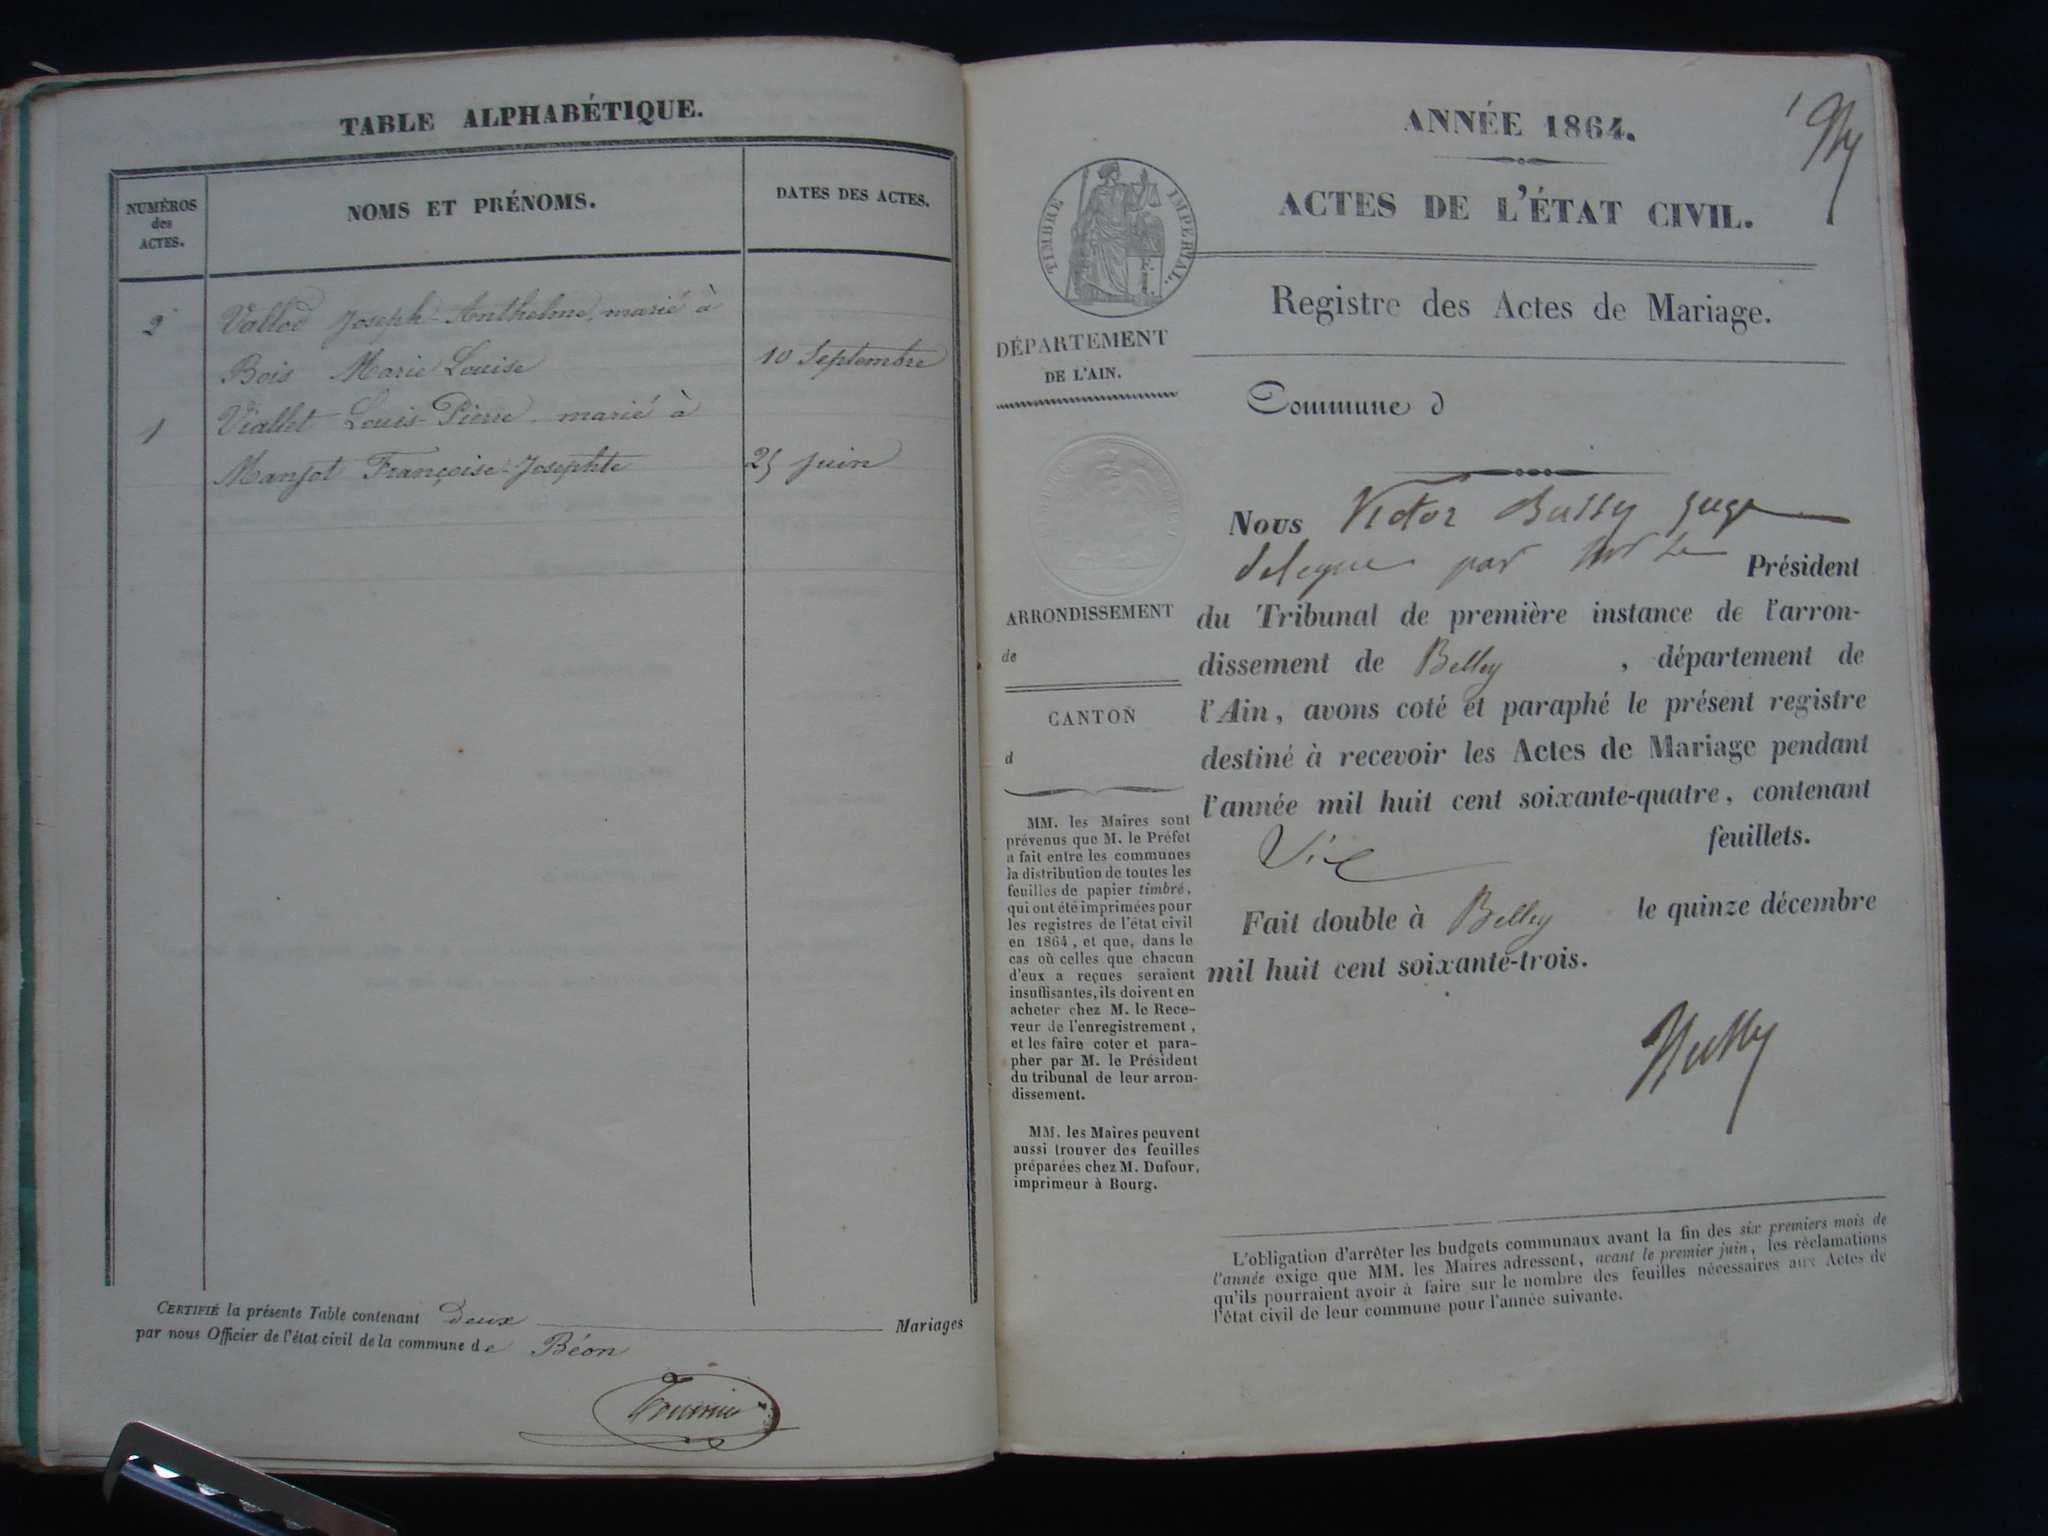 TABLE ALPHABÉTIQUE.
NUMÉROS
des
ACTES.
NOMS ET PRÉNOMS.
DATES DES ACTES.
2 Vallod Joseph-Anthelme, marié à
Bois Marie Louise 10 Septembre
1 Viallet Louis-Pierre marié à
Manjot Françoise-Josephte 25 juin
CERTIFIÉ la présente Table contenant deux Mariages
par nous Officier de l'état civil de la commune de Béon
ANNÉE 1864.
ACTES DE L'ÉTAT CIVIL.
TIMBRE IMPÉRIAL.
Registre des Actes de Mariage.
DÉPARTEMENT
DE L'AIN.
Commune d
ARRONDISSEMENT
de
CANTON
d
MM. les Maires sont
prévenus que M. le Préfet
a fait entre les communes
la distribution de toutes les
feuilles de papier timbré,
qui ont été imprimées pour
les registres de l'état civil
en 1864, et que, dans le
cas où celles que chacun
d'eux a reçues seraient
insuffisantes, ils doivent en
acheter chez M. le Rece-
veur de l'enregistrement,
et les faire coter et para-
pher par M. le Président
du tribunal de leur arron-
dissement.
MM. les Maires peuvent
aussi trouver des feuilles
préparées chez M. Dufour,
imprimeur à Bourg.
Nous Victor Bussy juge
delegue par Mr Le Président
du Tribunal de première instance de l'arron-
dissement de Belley, département de
l'Ain, avons coté et paraphé le présent registre
destiné à recevoir les Actes de Mariage pendant
l'année mil huit cent soixante-quatre, contenant
feuillets.
Fait double à Belley le quinze décembre
mil huit cent soixante-trois.
L'obligation d'arrêter les budgets communaux avant la fin des six premiers mois de
l'année exige que MM. les Maires adressent, avant le premier juin, les réclamations
qu'ils pourraient avoir à faire sur le nombre des feuilles nécessaires aux Actes de
l'état civil de leur commune pour l'année suivante.